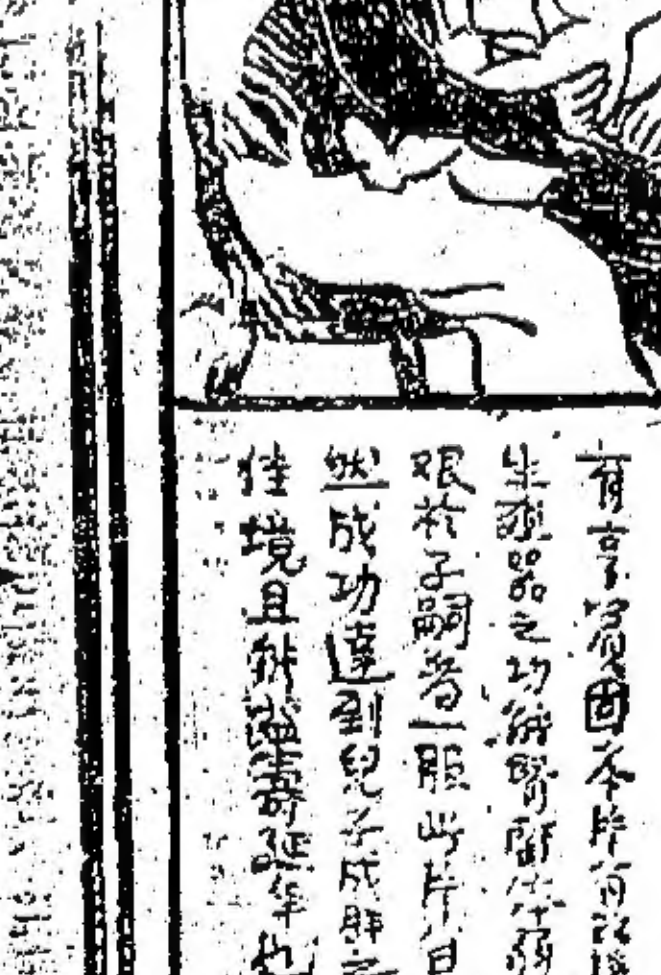 有享受固本片有改
生殖器之功能腎虧体弱
艱於子嗣者一服此片自
然成功達到兒子成胎之
佳境且能益壽延年也